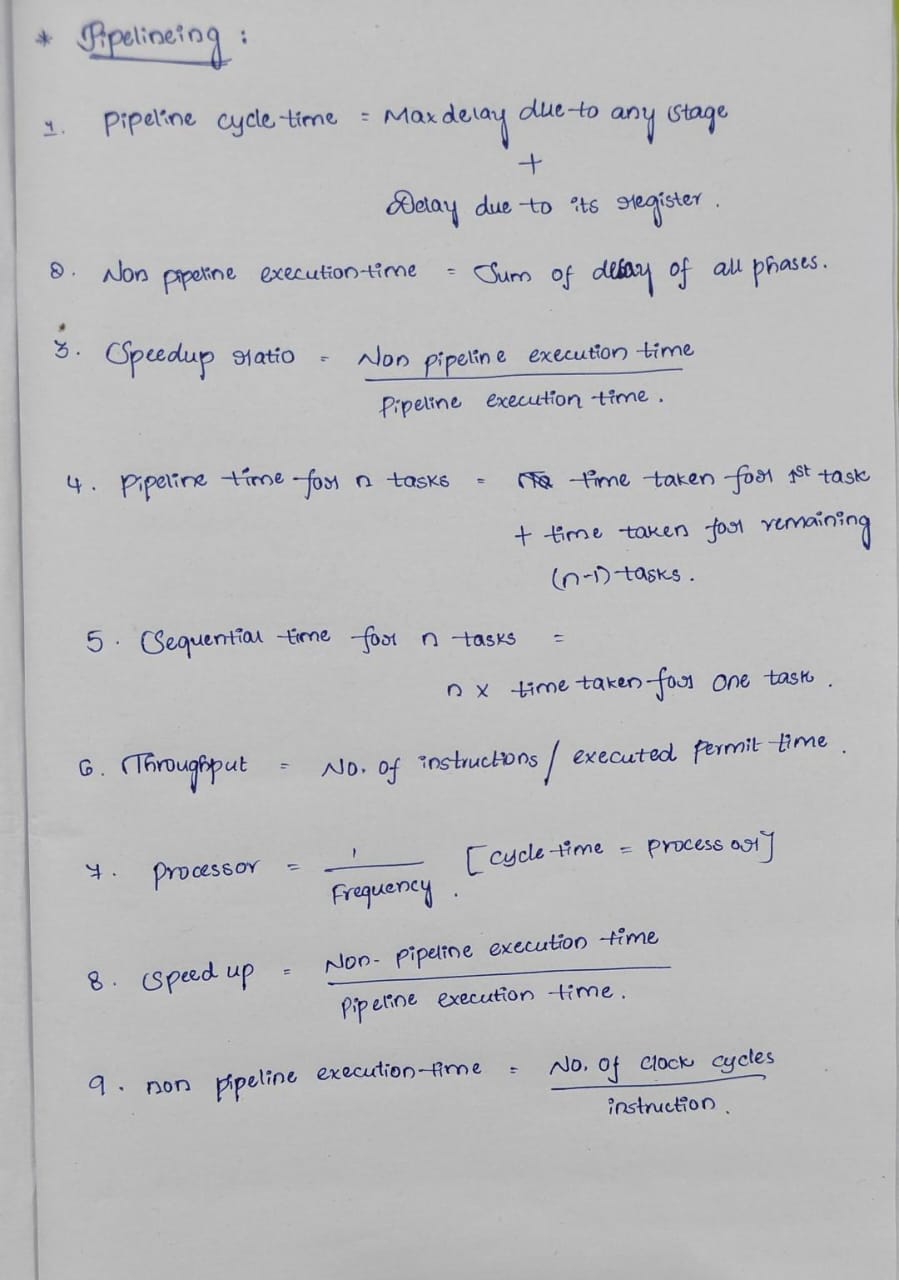 * Pipelineing :
1. Pipeline cycle time = Max delay due to any stage
+
Delay due to its register .
2. Non pipeline execution time = Sum of delay of all phases.
3. Speedup ratio = Non pipeline execution time
Pipeline execution time .
4. Pipeline time for n tasks = time taken for 1st task
+ time taken for remaining
(n-1) tasks .
5. Sequential time for n tasks =
n x time taken for one task .
6. Throughput = No. of instructions / executed Permit time .
7. processor = 1 [cycle time = processor]
Frequency .
8. speed up = Non- pipeline execution time
Pipeline execution time .
9. non pipeline execution time = No. of clock cycles
instruction .